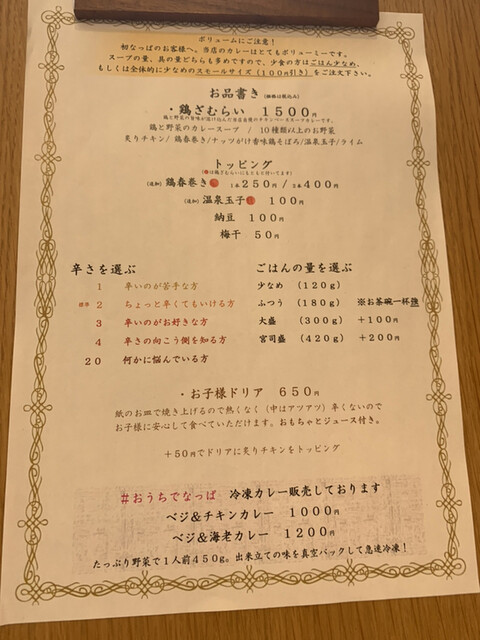 ボリュームにご注意！
初なっぱのお客様へ。当店のカレーはとてもボリューミーです。
スープの量、具の量どちらも多めですので、少食の方はごはん少なめ、
もしくは全体的に少なめのスモールサイズ（100円引き）をご注文下さい。
お品書き（価格は税込み）
・鶏ざむらい 1500円
鶏と野菜の旨味が溶け込んだ当店自慢のチキンベーススープカレーです。
鶏と野菜のカレースープ / 10種類以上のお野菜
炙りチキン/ 鶏春巻き/ナッツがけ香味鶏そぼろ/温泉玉子/ライム
トッピング
は鶏ざむらいにもともと付いてます）
（追加）鶏春巻き 1本250円 / 2本400円
（追加）温泉玉子 100円
納豆 100円
梅干 50円
辛さを選ぶ
1 辛いのが苦手な方
標準 2 ちょっと辛くてもいける方
3 辛いのがお好きな方
4 辛さの向こう側を知る方
20 何かに悩んでいる方
ごはんの量を選ぶ
少なめ （120g）
ふつう （180g） ※お茶碗一杯強
大盛 （300g） ＋100円
宮司盛 （420g） ＋200円
・お子様ドリア 650円
紙のお皿で焼き上げるので熱くなく（中はアツアツ）辛くないので
お子様に安心して食べていただけます。おもちゃとジュース付き。
＋50円でドリアに炙りチキンをトッピング
#おうちでなっぱ 冷凍カレー販売しております
ベジ＆チキンカレー 1000円
ベジ＆海老カレー 1200円
たっぷり野菜で1人前450g。出来立ての味を真空パックして急速冷凍！